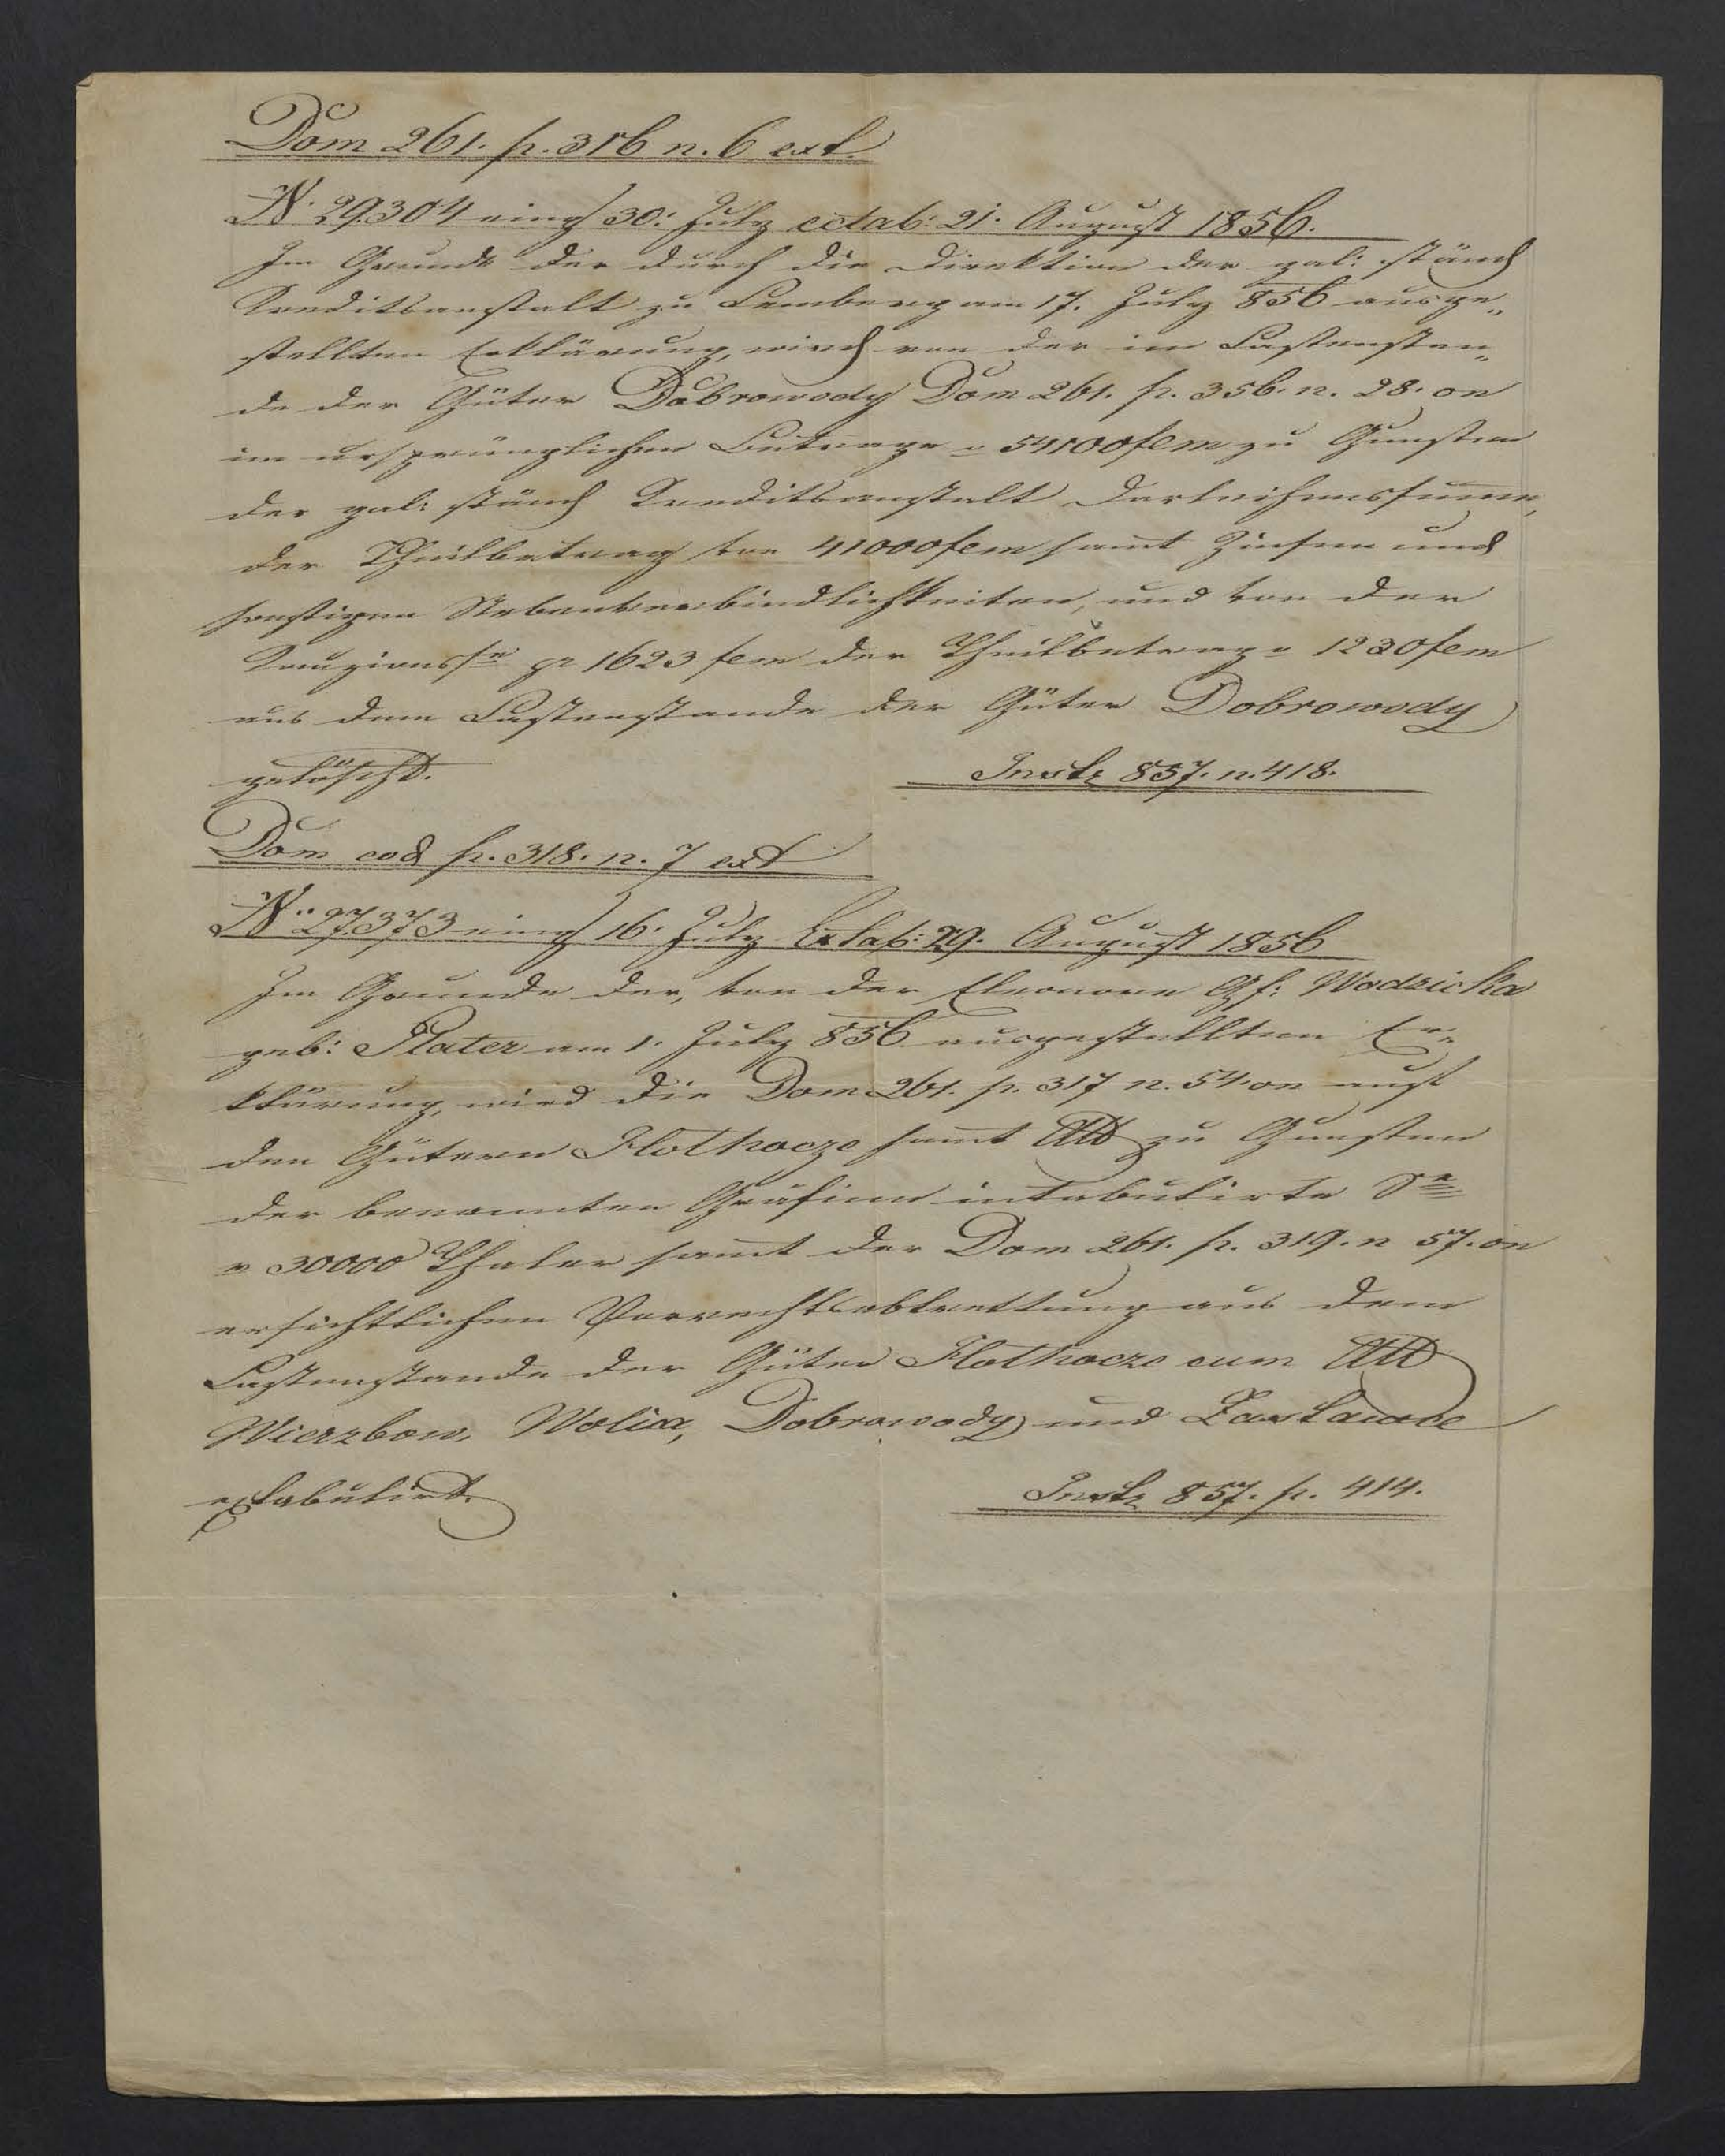 Dom 261. p. 316 n. 6 ext.
N. 29304 eing 30. July extab: 21. August 1856.
Im Grunde der durch die Direktion der gal: ständ
Kreditsanstalt zu Lemberg am 17. July 856 ausge„
stellten Erklärung, wird von der im Lastenstan„
de der Güter Dobrowody Dom 261. p. 356. n. 28. on
im ursprünglichen Betrage 54100 fcm zu Gunsten
der gal: ständ Kreditsanstalt Darleihenssumme,
der Theilbetrag von 41000 fcm sammt Zinsen und
sonstigen Nebenverbindlichkeiten, und von der
pr 1623 fcm der Theilbetrag 1230 fcm
aus dem Lastenstande der Güter Dobrowody
gelöscht. Instr 857. n. 418.
Dom eod p. 318. n. 7 ext
N. 27373 eing 16. July Extab: 29. August 1856
Im Grunde der, von der Eleonore Gf: Wodzicka
geb: Plater am 1. July 856 ausgestellten Er„
klärung, wird die Dom 261. p. 317 n. 54 on
den Gütern Hothocze sammt Att zu Gunsten
der benannten Gräfinn intabulirte
30000 Thaler sammt der Dom 261. p. 319. n 57. on
ersichtlichen Vorrechtsabtrettung aus dem
Lastenstande der Güter Hothocze cum Att
Wierzbow, Wolica, Dobrowody und
extabulirt. Instr 857. p. 414.